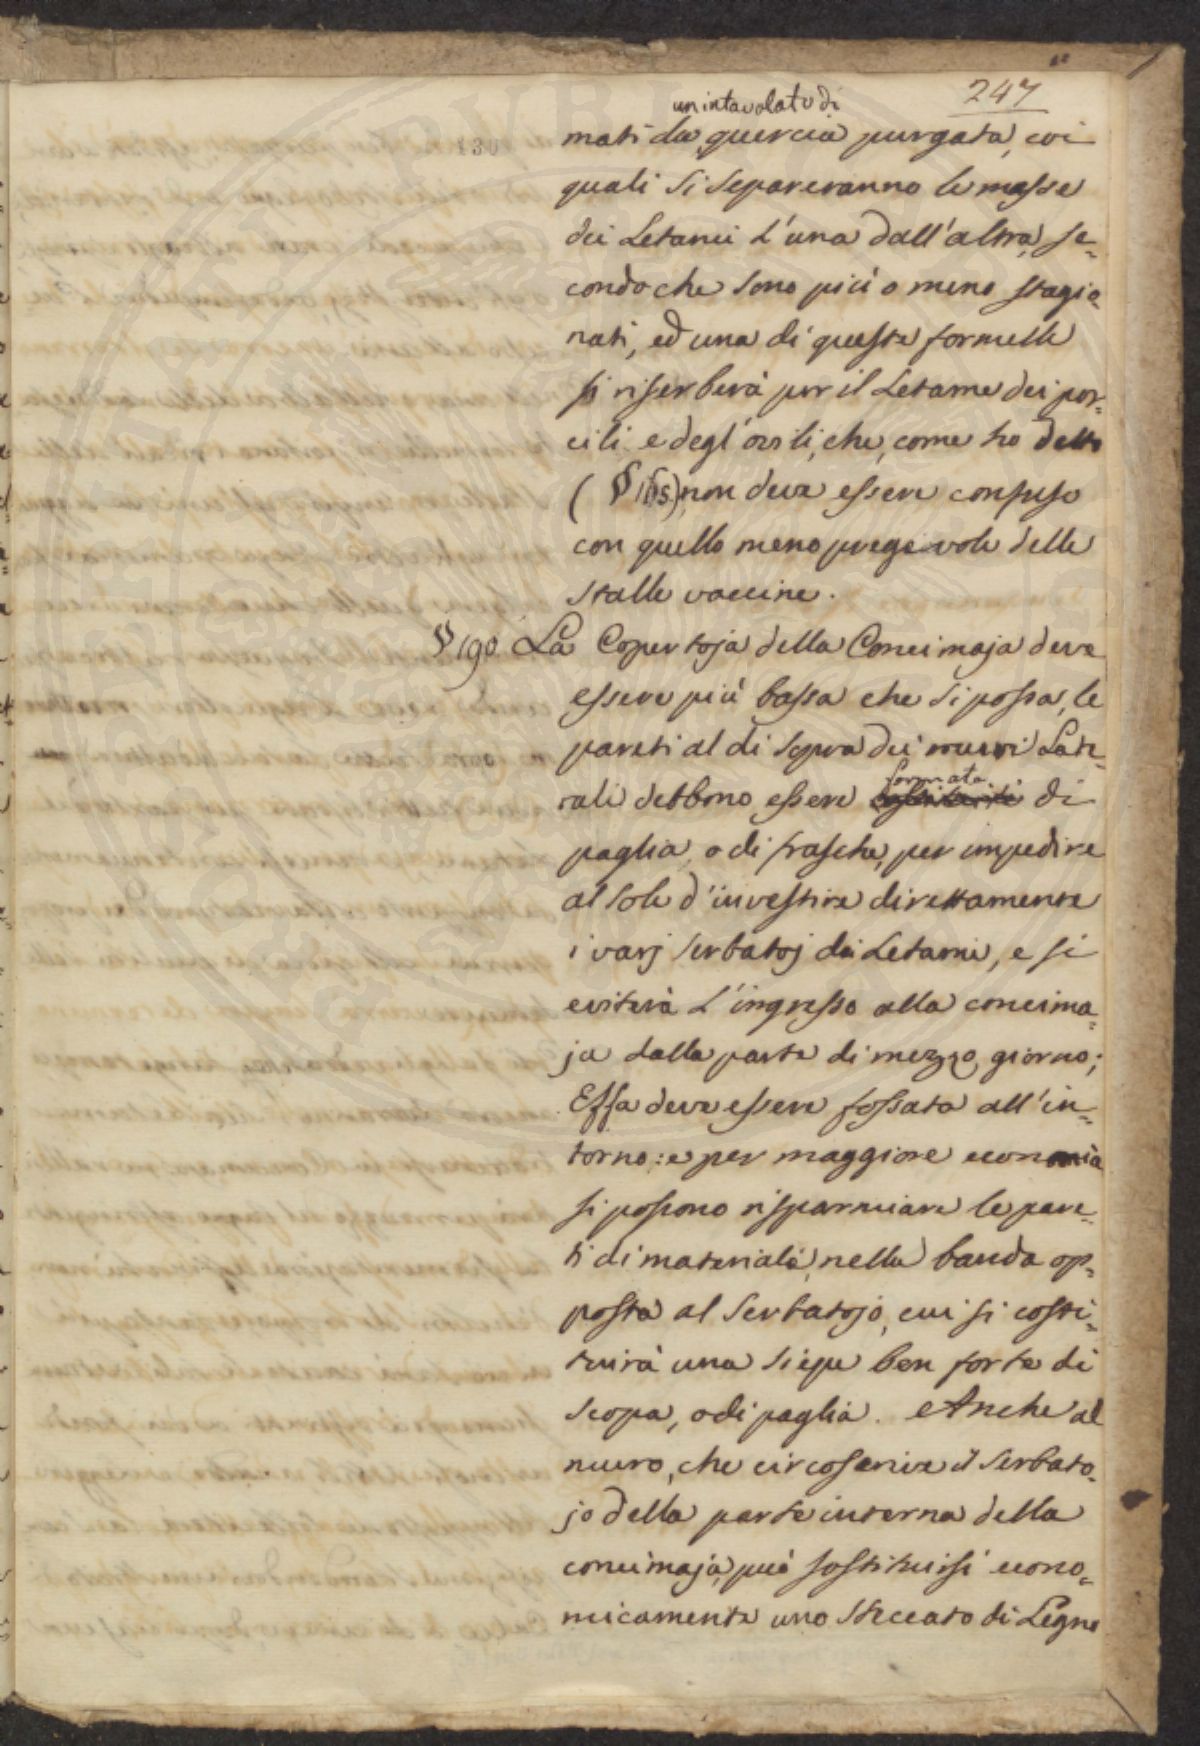 247
un intavolato di
130
mati da quercia purgata, coi
quali si separeranno le masse
dei Letami l'una dall'altra, se=
condo che sono più o meno stagio=
nati, ed una di queste formelle
si riserberà per il Letame dei por=
cili e degl'ovili, che, come ho detto
(§ 165) non deve essere confuso
con quello meno pregevole delle
stalle vaccine.
§ 190. La Copertoja della Concimaja deve
essere più bassa che si possa, le
pareti al di sopra dei muri Late=
rali debbono essere formate di
paglia, o di frasche, per impedire
al sole d'investire direttamente
i varj serbatoj dei Letami, e si
eviterà l'ingresso alla concima=
ja dalla parte di mezzo giorno;
Essa deve essere fossata all'in=
torno: e per maggiore economia
si possono risparmiare le pare=
ti di materiale, nella banda op=
posta al serbatojo, cui si costi=
tuirà una siepe ben forte di
scopa, o di paglia. Anche al
muro, che circoscrive il serbato=
jo della parte interna della
concimaja, può sostituirsi econo=
micamente uno steccato di Legno